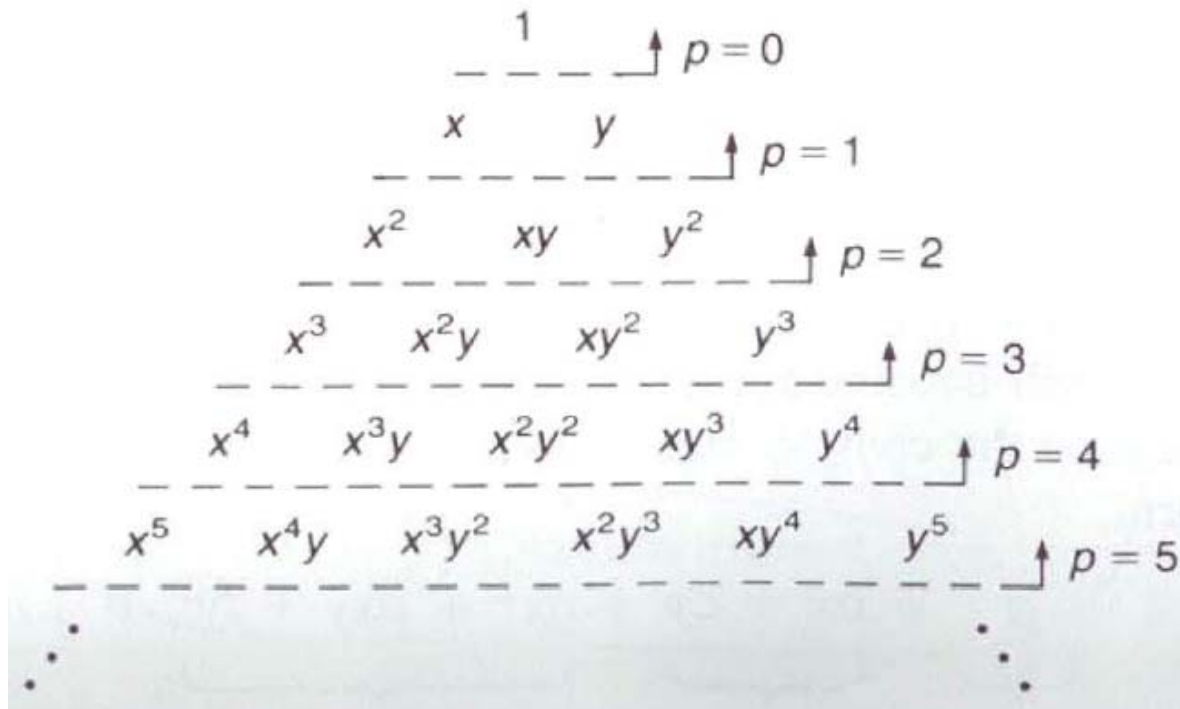 1 p = 0
x y p = 1
x² xy y² p = 2
x³ x²y xy² y³ p = 3
x⁴ x³y x²y² xy³ y⁴ p = 4
x⁵ x⁴y x³y² x²y³ xy⁴ y⁵ p = 5